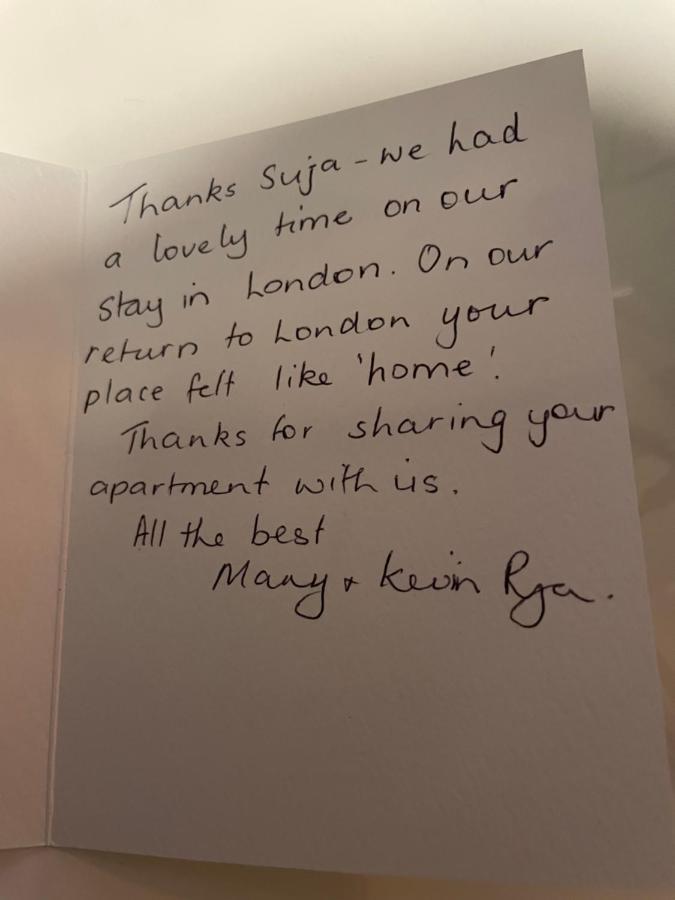 Thanks Suja - we had
a lovely time on our
stay in London. On our
return to London your
place felt like 'home'.
Thanks for sharing your
apartment with us.
All the best
+ Kevin